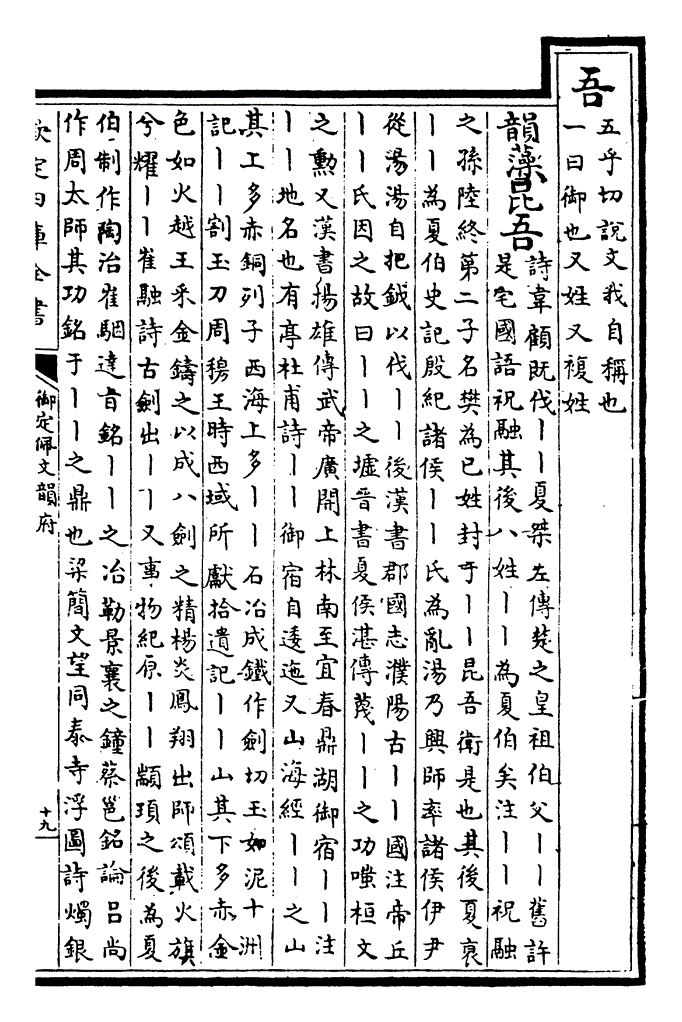 吾
五乎切說文我自稱也
一曰御也又姓又複姓
韻藻昆吾
詩韋顧既伐——夏桀左傳楚之皇祖伯父——舊許
是宅國語祝融其後八姓——為夏伯矣注——祝融
之孫陸終第二子名樊為己姓封于——昆吾衛是也其後夏衰
——為夏伯史記殷紀諸侯——氏為亂湯乃興師率諸侯伊尹
從湯湯自把鉞以伐——後漢書郡國志濮陽古——國注帝丘
——氏因之故曰——之墟晉書夏侯湛傳蔑——之功嗤桓文
之勲又漢書揚雄傳武帝廣開上林南至宜春鼎湖御宿——注
——地名也有亭杜甫詩——御宿自逶迤又山海經——之山
其上多赤銅列子西海上多——石冶成鐵作劍切玉如泥十洲
記——割玉刀周穆王時西域所獻拾遺記——山其下多赤金
色如火越王采金鑄之以成八劍之精楊炎鳳翔出師頌載火旗
兮耀——崔融詩古劍出——又事物紀原——顓頊之後為夏
伯制作陶冶崔駰達旨銘——之冶勒景襄之鐘蔡邕銘論呂尚
作周太師其功銘于——之鼎也梁簡文望同泰寺浮圖詩燭銀
欽定四庫全書
御定佩文韻府
十九